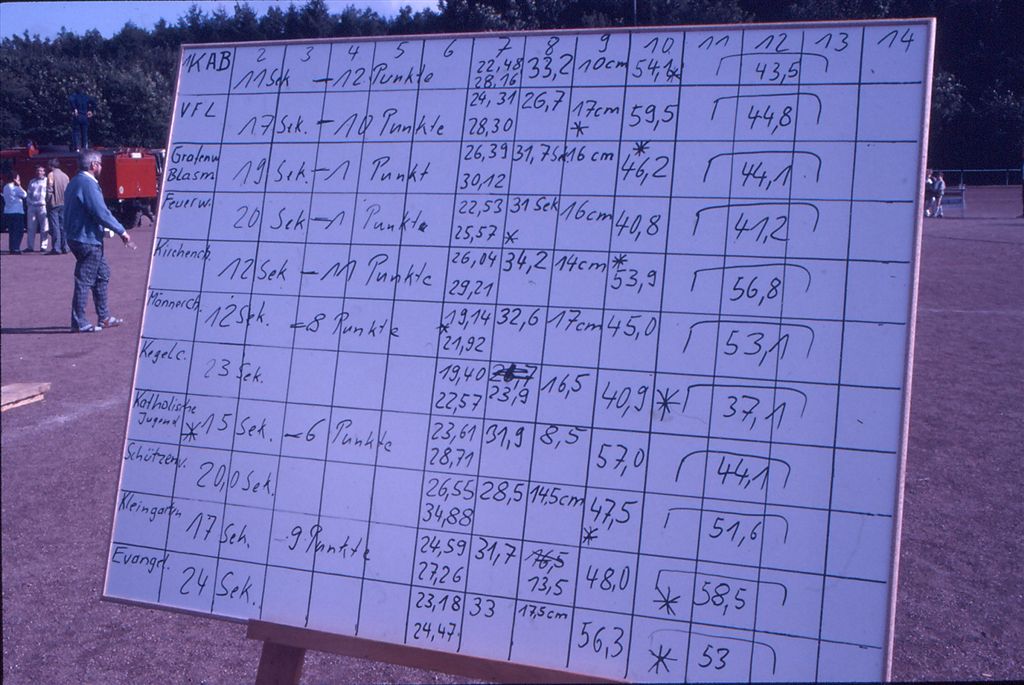 1 KAB 2 3 4 5 6 7 8 9 10 11 12 13 14
11 Sek – 12 Punkte 22,48 28,16 33,2 10cm 54,1* 43,5
VFL 17 Sek. – 10 Punkte 24,31 28,30 26,7 17cm * 59,5 44,8
Grafenw Blasm 19 Sek. – 1 Punkt 26,39 30,12 31,7 Sek 16 cm * 46,2 44,1
Feuerw. 20 Sek – 1 Punkte 22,53 25,57 31 Sek * 16cm 40,8 41,2
Kirchench. 12 Sek – 11 Punkte 26,04 29,21 34,2 14cm * 53,9 56,8
Männerch. 12 Sek. = 8 Punkte * 19,14 21,92 32,6 17cm 45,0 53,1
Kegelc. 23 Sek. 19,40 22,57 23,9 16,5 40,9 * 37,1
Katholische Jugend * 15 Sek. – 6 Punkte 23,61 28,71 31,9 8,5 57,0 44,1
Schützenv. 20,0 Sek. 26,55 34,88 28,5 14,5cm 47,5 * 51,6
Kleingärtn 17 Sek. – 9 Punkte 24,59 27,26 31,7 16,5 13,5 48,0 * 58,5
Evangl. 24 Sek. 23,18 24,47 33 17,5cm 56,3 * 53